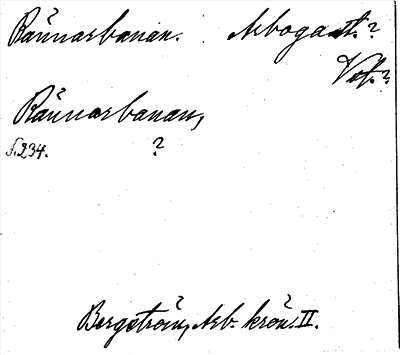 Rännarbanan. Arbogast.?
Vsf.?
Rännarbanan,
s. 234. ?
Bergström, Arb. krön. II.